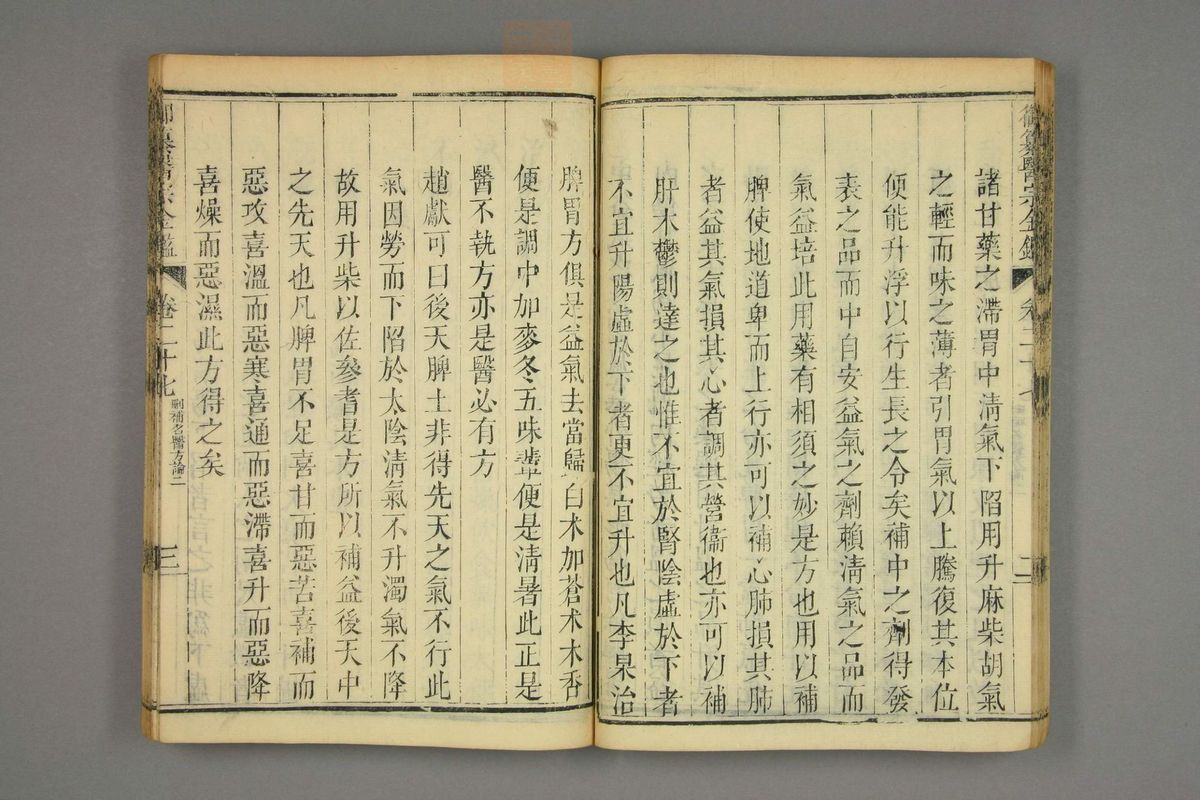 御纂醫宗金鑑
卷二十七
二
諸甘藥之滯胃中淸氣下陷用升麻柴胡氣
之輕而味之薄者引胃氣以上騰復其本位
便能升浮以行生長之令矣補中之劑得發
表之品而中自安益氣之劑賴淸氣之品而
氣益培此用藥有相須之妙是方也用以補
脾使地道卑而上行亦可以補心肺損其肺
者益其氣損其心者調其營衞也亦可以補
肝木鬱則達之也惟不宜於腎陰虛於下者
不宜升陽虛於下者更不宜升也凡李杲治
脾胃方俱是益氣去當歸白术加蒼术木香
便是調中加麥冬五味輩便是淸暑此正是
醫不執方亦是醫必有方
趙獻可曰後天脾土非得先天之氣不行此
氣因勞而下陷於太陰淸氣不升濁氣不降
故用升柴以佐參耆是方所以補益後天中
之先天也凡脾胃不足喜甘而惡苦喜補而
惡攻喜溫而惡寒喜通而惡滯喜升而惡降
喜燥而惡濕此方得之矣
御纂醫宗金鑑
卷二十七
刪補名醫方論二
三